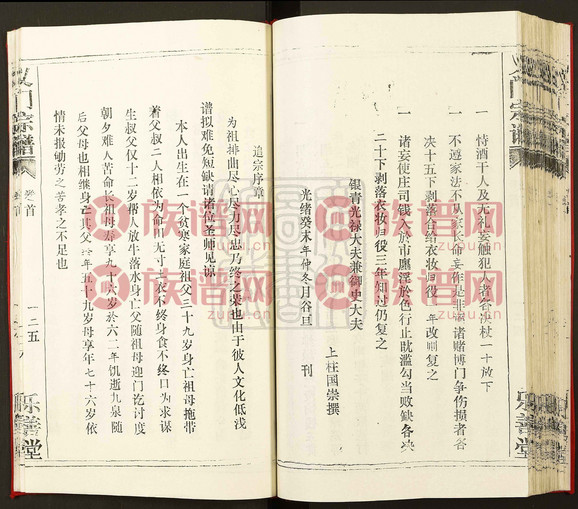 一 恃酒干人及无礼妄触犯人者各决杖一十放下
一 不遵家法不从家长命妄作是非逐诸赌博门争伤损者各
决十五下剥落衣妆归役一年改则复之
一 诸妄使庄司钱入于市廛淫于色行止既滥勾当败缺各决
二十下剥落衣妆归役三年知过仍复之
银青光禄大夫兼御史大夫
上柱国崇撰
光绪癸未年仲冬月谷旦
刊
追宗序章
为祖排曲尽心尽力尽忠乃终之来也由于彼人文化低浅
谱拟难免短缺请诸位圣师见谅
本人出生在一个贫寒家庭祖父三十九岁身亡祖母拖带
着父叔二人相依为命田无寸土衣不终身食不终口为求谋
生叔父仅十二岁帮人放牛落水身亡父随祖母迎门讫讨度
朝夕难人苦命长祖母寿享九十六岁于六二年饥逝九泉随
后父母也相继身亡其父终年五十九岁母享年七十六岁依
情未报劬劳之苦孝之不足也
门宗谱
卷首
一二五
乐善堂
宗谱
乐善堂
族谱网
zupu.cn